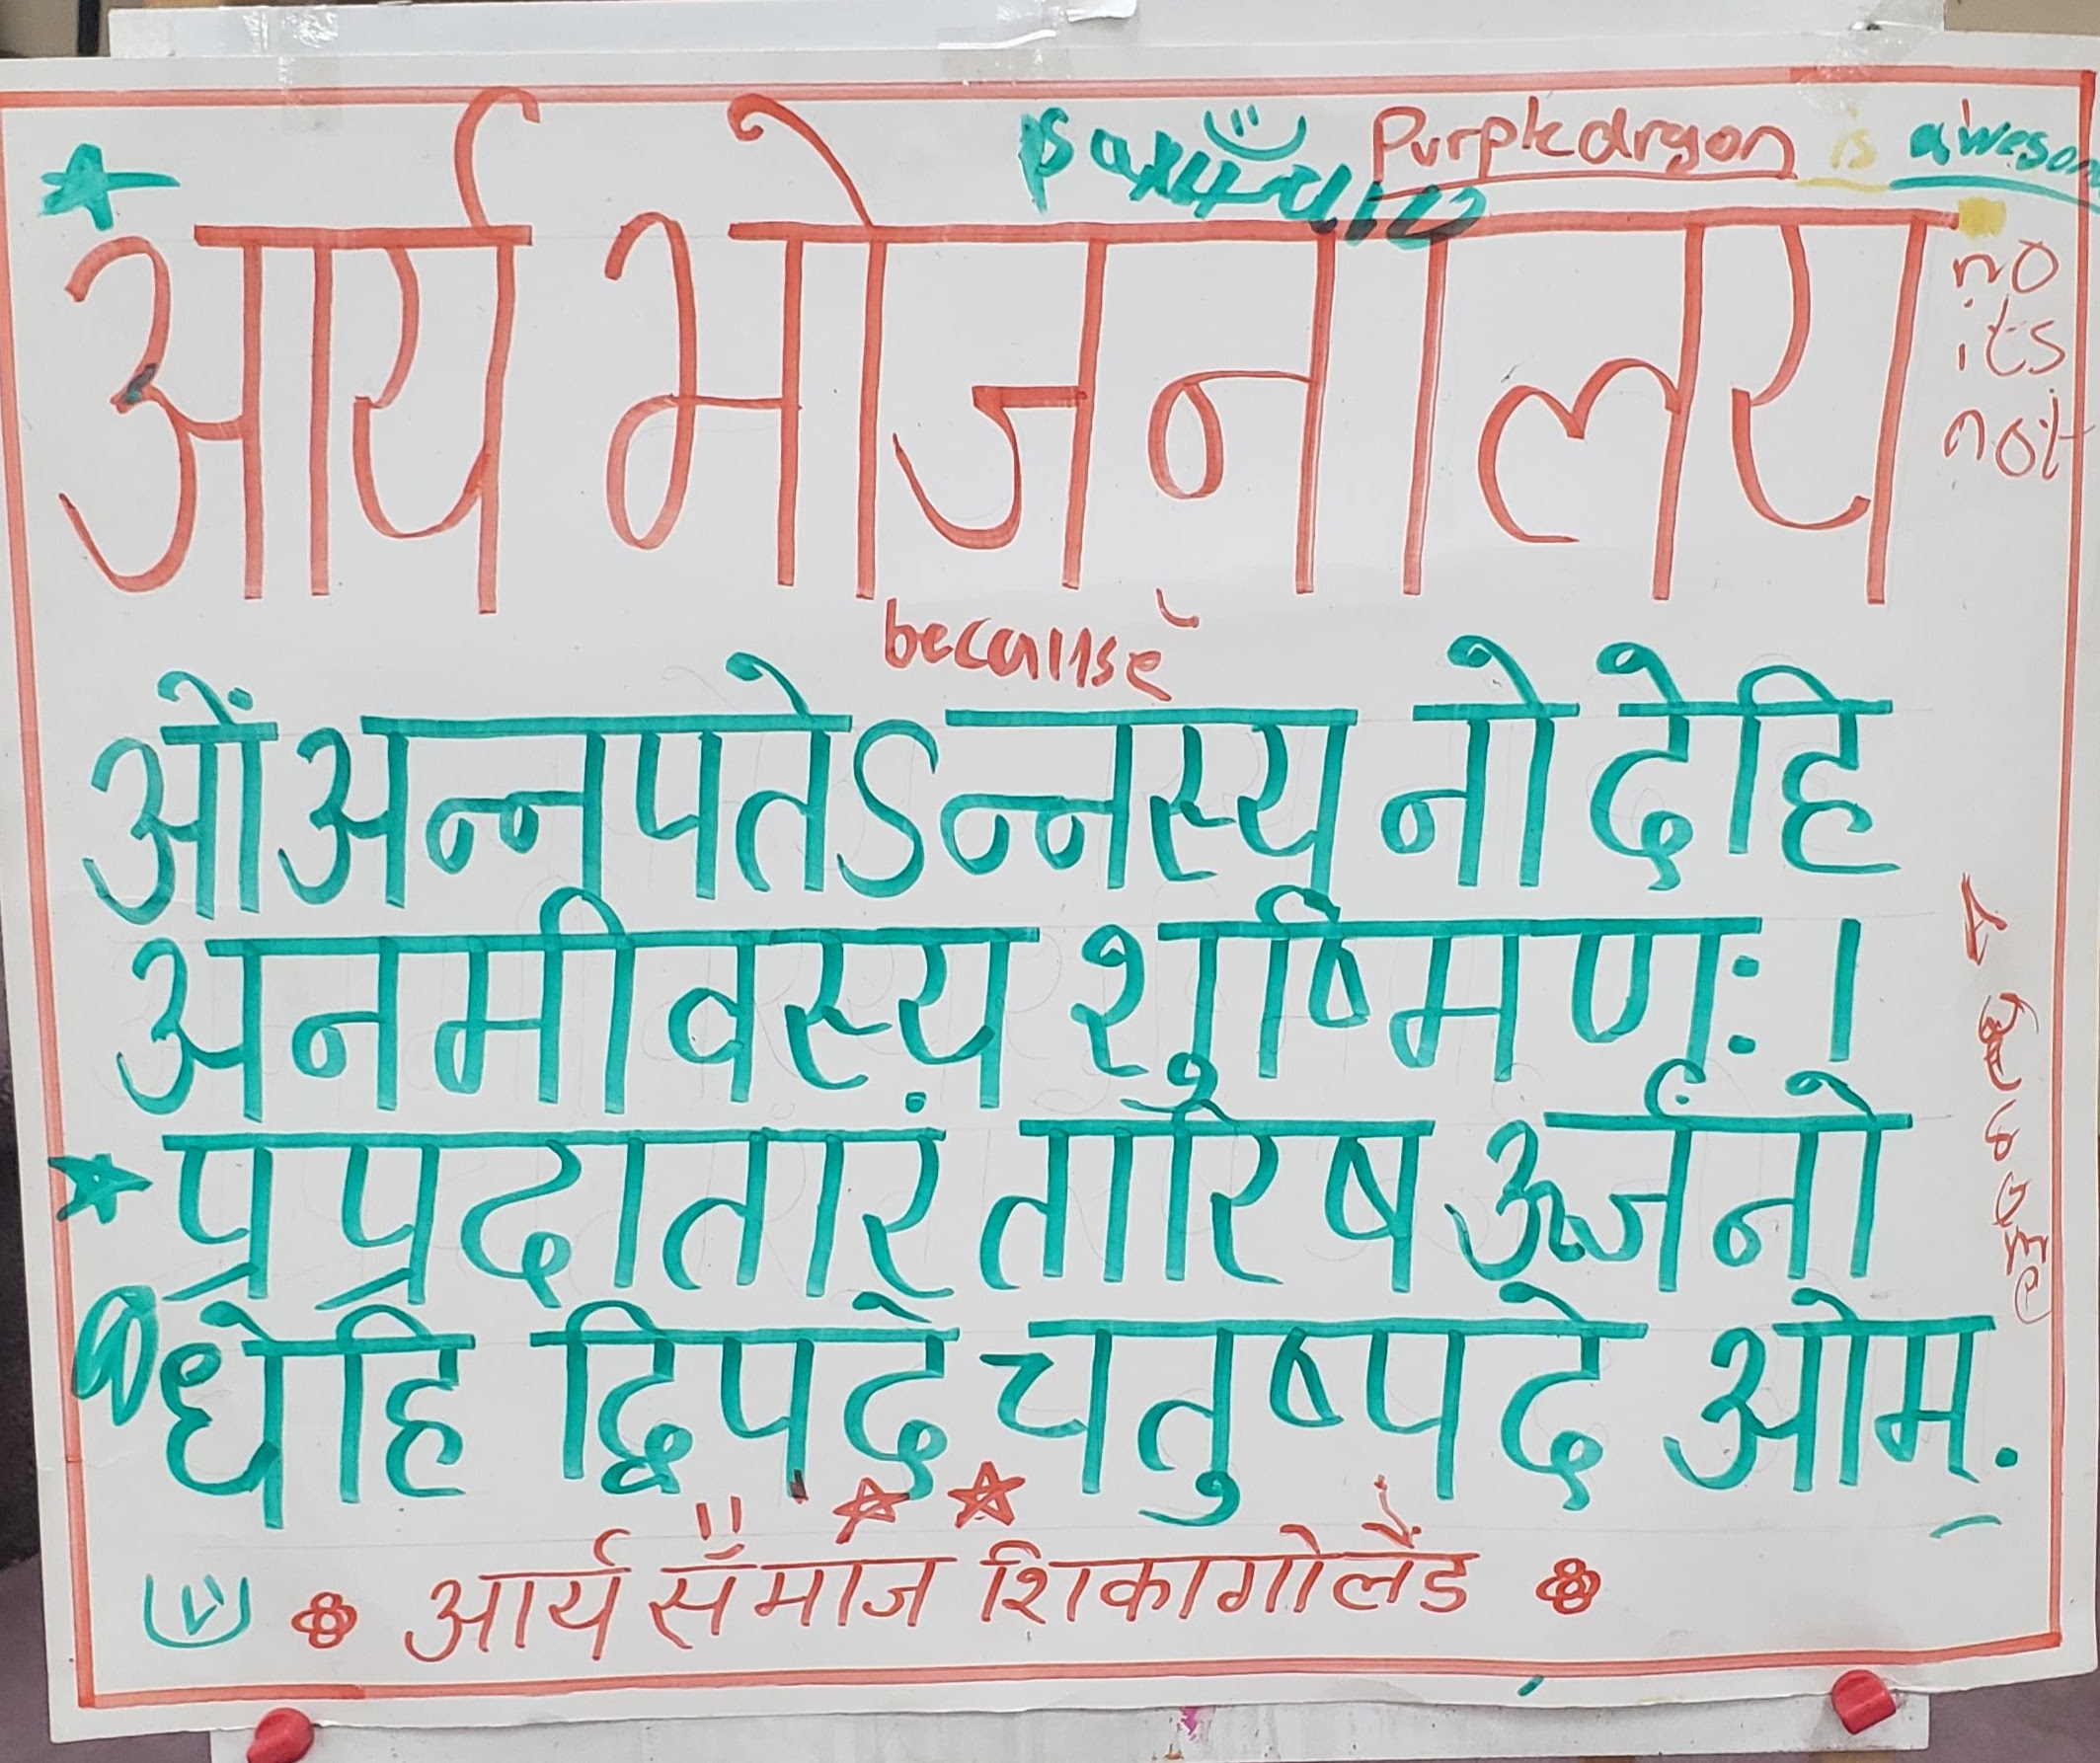 Purpledrgon is awesom
आर्य भोजनालय
no
its
not
because
ओं अन्नपतेऽन्नस्य नो देहि
अनमीवस्य शुष्मिणः।
प्र प्रदातारं तारिष ऊर्जं नो
धेहि द्विपदे चतुष्पदे ओम्.
आर्य समाज शिकागोलैंड